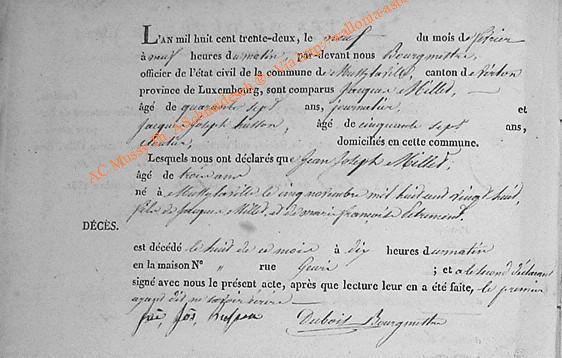 L'AN mil huit cent trente-deux, le neuf du mois de février
à neuf heures du matin, par-devant nous Bourgmestre
officier de l'état civil de la commune de Mussy la ville, canton de Virton
province de Luxembourg, sont comparus Jacques Millet,
âgé de quarante sept ans, journalier, et
Jacques Joseph husson, âgé de cinquante sept ans,
cloutier, domiciliés en cette commune.
Lesquels nous ont déclarés que Jean Joseph Millet,
âgé de trois ans
né à Mussy la ville le cinq novembre mil huit cent vingt huit,
fils de Jacques Millet, et de marie françoise
DÉCÈS.
est décédé le huit de ce mois à dix heures du matin
en la maison N° " rue ; et a le second déclarant
signé avec nous le présent acte, après que lecture leur en a été faite, le premier
ayant dit ne savoir écrire
Jos husson Dubois Bourgmestre
AC Mussy Via http://wallonia-asbl